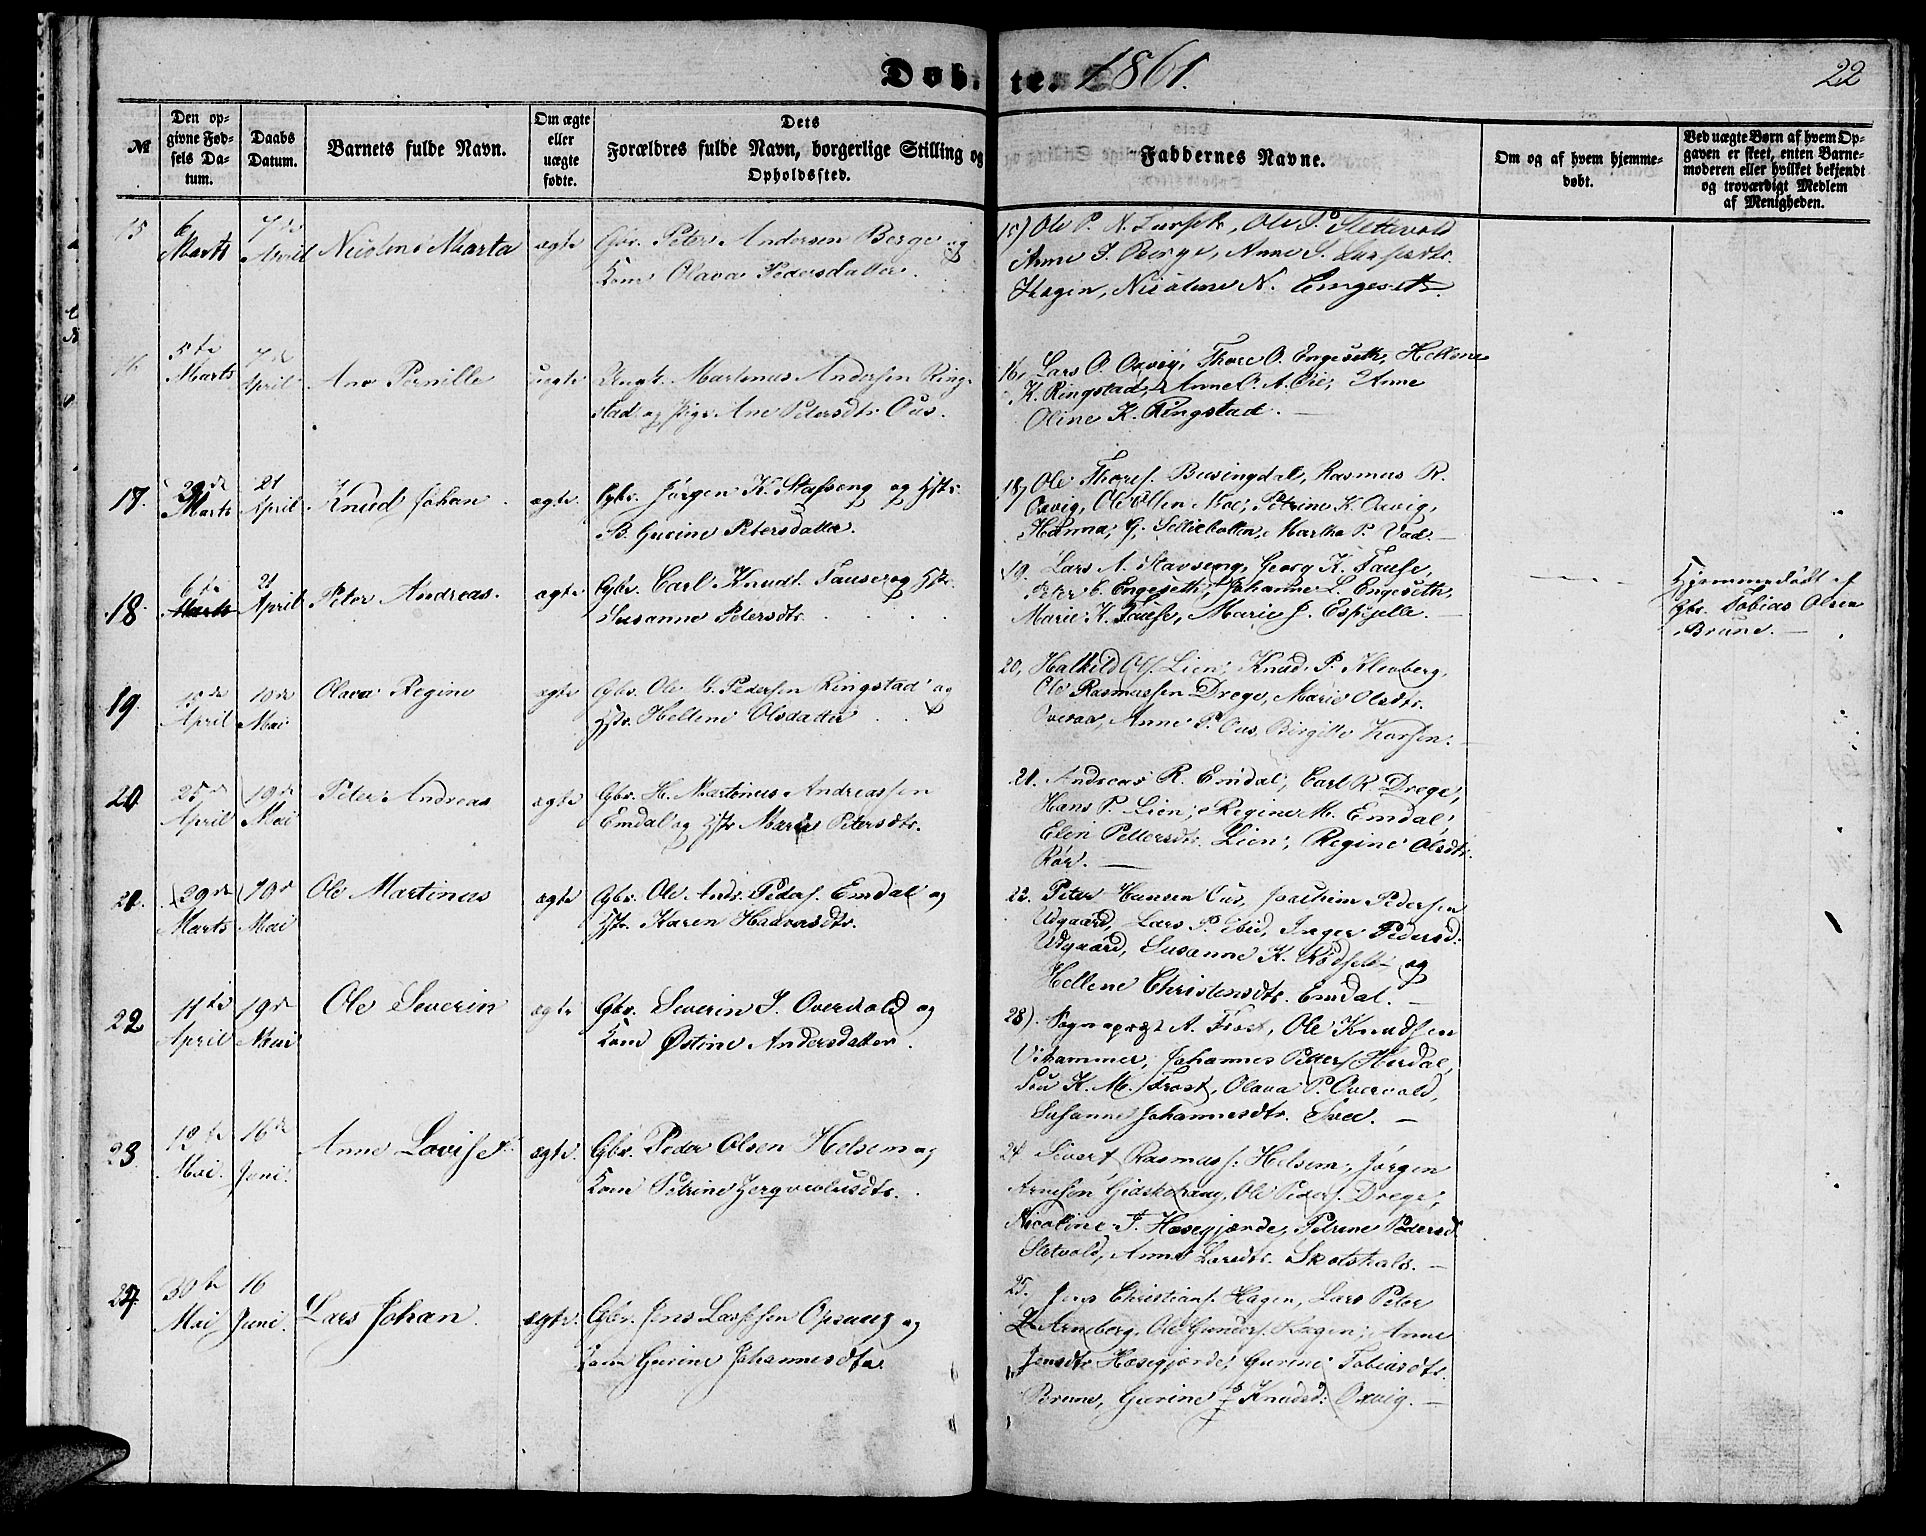 Døbte. 1861.
22
№
Den op-
givne Fød-
sels Da-
tum.
Daabs
Datum.
Barnets fulde Navn.
Om ægte
eller
uægte
fødte.
Dets
Forældres fulde Navn, borgerlige Stilling og
Opholdssted.
Faddernes Navne.
Om og af hvem hjemme-
døbt.
Ved uægte Børn af hvem Op-
gaven er skeet, enten Barne-
moderen eller hvilket bekjendt
og troværdigt Medlem
af Menigheden.
15
6
Marts
7de
April
Nicoline Marta
ægte
Gbr. Peter Andersen Berge og
Kone Olava Pedersdatter.
15) Ole P. N. Ole P. Slettevold
Anne J. Berge, Anne
Hagen, Nicoline N. Engeset.
16
5te
Marts
7de
April
Ane Pernille
uægte
Ungk. Martinus Andersen Ring-
stad og Pige Ane Petersdtr. Ous.
16, Lars O. Oxvig, Thore O. Engeseth, Hellene
K. Ringstad, Anne Anne
Oline K. Ringstad. —
17.
Marts
21
April
Knud Johan
ægte
Gbr. Jørgen K. Stafseng og Hstr.
B. Gurine Petersdatter.
18, Ole Thores. Busingdal, Rasmus R.
Oxvig, Ole Olsen Moe, Petrine K. Oxvig,
Hanna G. Selliebotten, Martha P. Vad. —
18.
6te
Marts
21
April
Peter Andreas.
ægte
Gbr. Carl Knudt. Fause og Hstr.
Susanne Petersdtr.
19. Lars A. Stavseng, Georg K. Fause,
Peter C. Engeseth, Johanne L. Engeseth,
Marie K. Fause, Marie J. Espehelle. —
Hjemmedøbt af
Gbr. Tobias Olsen
Brune. —
19.
15de
April
10de
Mai
Olava Regine
ægte
Gbr. Ole C. Pedersen Ringstad og
Hstr. Hellene Olsdatter
20, Halkild Ols. Lien, Knud P. Kleberg,
Ole Rasmussen Drege, Marie Olsdtr.
Overaa, Anne P. Ous, Birgitte Korsen. —
20
25de
April
19de
Mai
Peter Andreas
ægte
Gbr. H. Martinus Andreassen
Emdal og Hstr Marie Petersdtr.
21. Andreas R. Emdal, Carl R Drege,
Hans P. Lien, Regine M. Emdal,
Elen Pettersdtr. Lien, Regine Olsdtr.
Rør. —
21.
29de
Marts
10de
Mai
Ole Martinus
ægte
Gbr. Ole Andr. Peders. Emdal og
Hstr. Karen Hadvardtr.
22. Peter Hansen Ous, Joachim Pedersen
Udgaard, Lars P. ibid, Inger Pedersd.
Udgaard, Susanne K. Rødseth og
Hellene Christensdtr. Emdal. —
22
11te
April
19de
Mai
Ole Severin
ægte
Gbr. Severin J. Overvold og
Kone Østine Andersdatter.
23). Sognepræst A. Frost, Ole Knudsen
Vikhammer, Johannes Peters. Herdal,
Fru K. M. Frost, Olava P. Overvold,
Susanne Johannesdtr. Svee. —
23
12te
Mai.
16de
Juni.
Anne Lovise
ægte.
Gbr. Peder Olsen Helsem og
Kone Petrine
24 Sivert Rasmuss. Helsem, Jørgen
Arnesen Gidskehaug, Ole Peders. Drege,
Nicoline J. Hæsegjærde, Petrine Pedersd.
Sletvold, Anne Larsdtr. Skotshals. —
24
30te
Mai
16
Juni.
Lars Johan.
ægte.
Gbr. Jens Larssen Opsaug og
Kone Gurine Johannesdtr.
25. Jens Christians. Hagen, Lars Peter
K. Arneberg, Ole Gunders. Hagen, Anne
Jensdtr. Hæsegjærde, Gurine Tobiasdtr.
Brune, Gurine Knudsd. Oxvig. —